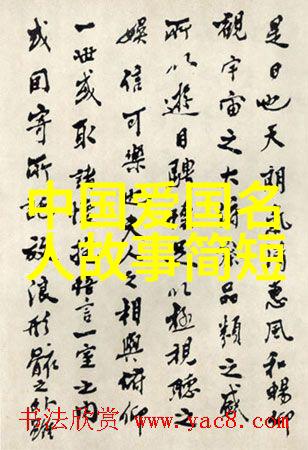 是日也天朗惠風和暢仰
觀宇宙之大品類之盛
所以遊目騁以極視聽之
娛信可樂也夫人之相與俯仰
一世或取諸悟言一室之內
或因寄所放浪形骸之外雖
中国爱国名
人故事简短
书法欣赏 www.yac8.com